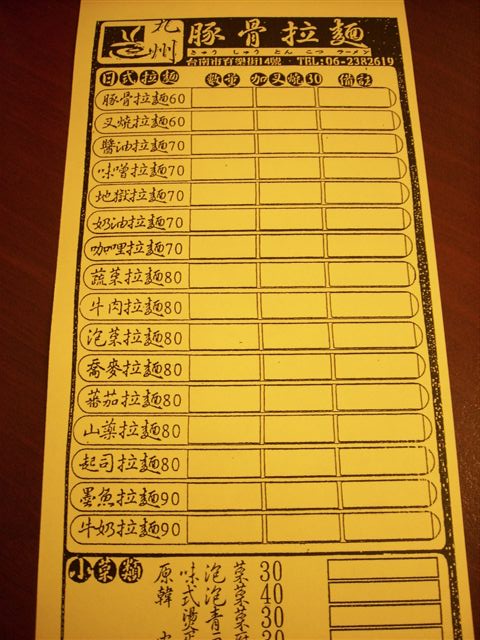 九州 豚骨拉麵
きゅう しゅう とん こつ ラーメン
台南市育樂街14號 TEL:06-2382619
日式拉麵 數量 加叉燒30 備註
豚骨拉麵60
叉燒拉麵60
醬油拉麵70
味噌拉麵70
地獄拉麵70
奶油拉麵70
咖哩拉麵70
蔬菜拉麵80
牛肉拉麵80
泡菜拉麵80
喬麥拉麵80
蕃茄拉麵80
山藥拉麵80
起司拉麵80
墨魚拉麵90
牛奶拉麵90
小菜類
原味泡菜30
韓式泡菜40
燙青菜30
30